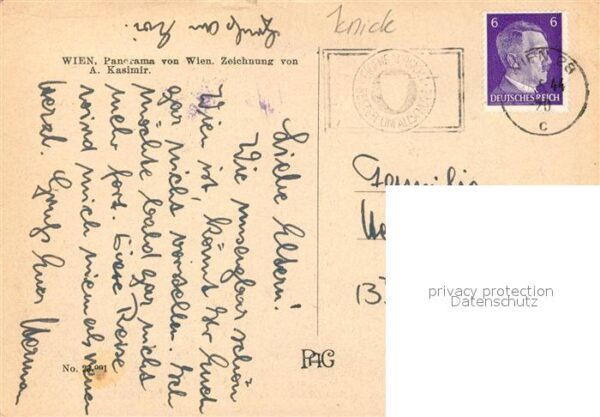 Gruß an Evi.
knick
WIEN, Panorama von Wien. Zeichnung von
A. Kasimir.
6 6
DEUTSCHES REICH
WIEN
44
c
Liebe Eltern!
Wie unsagbar schön
Wien ist, könnt Ihr Euch
gar nicht vorstellen. Ich
möchte bald gar nicht
mehr fort. Diese Reise
wird mich niemals reuen
Herzl. Grüße Euer Herman
Familie
13
privacy protection
Datenschutz
PAG